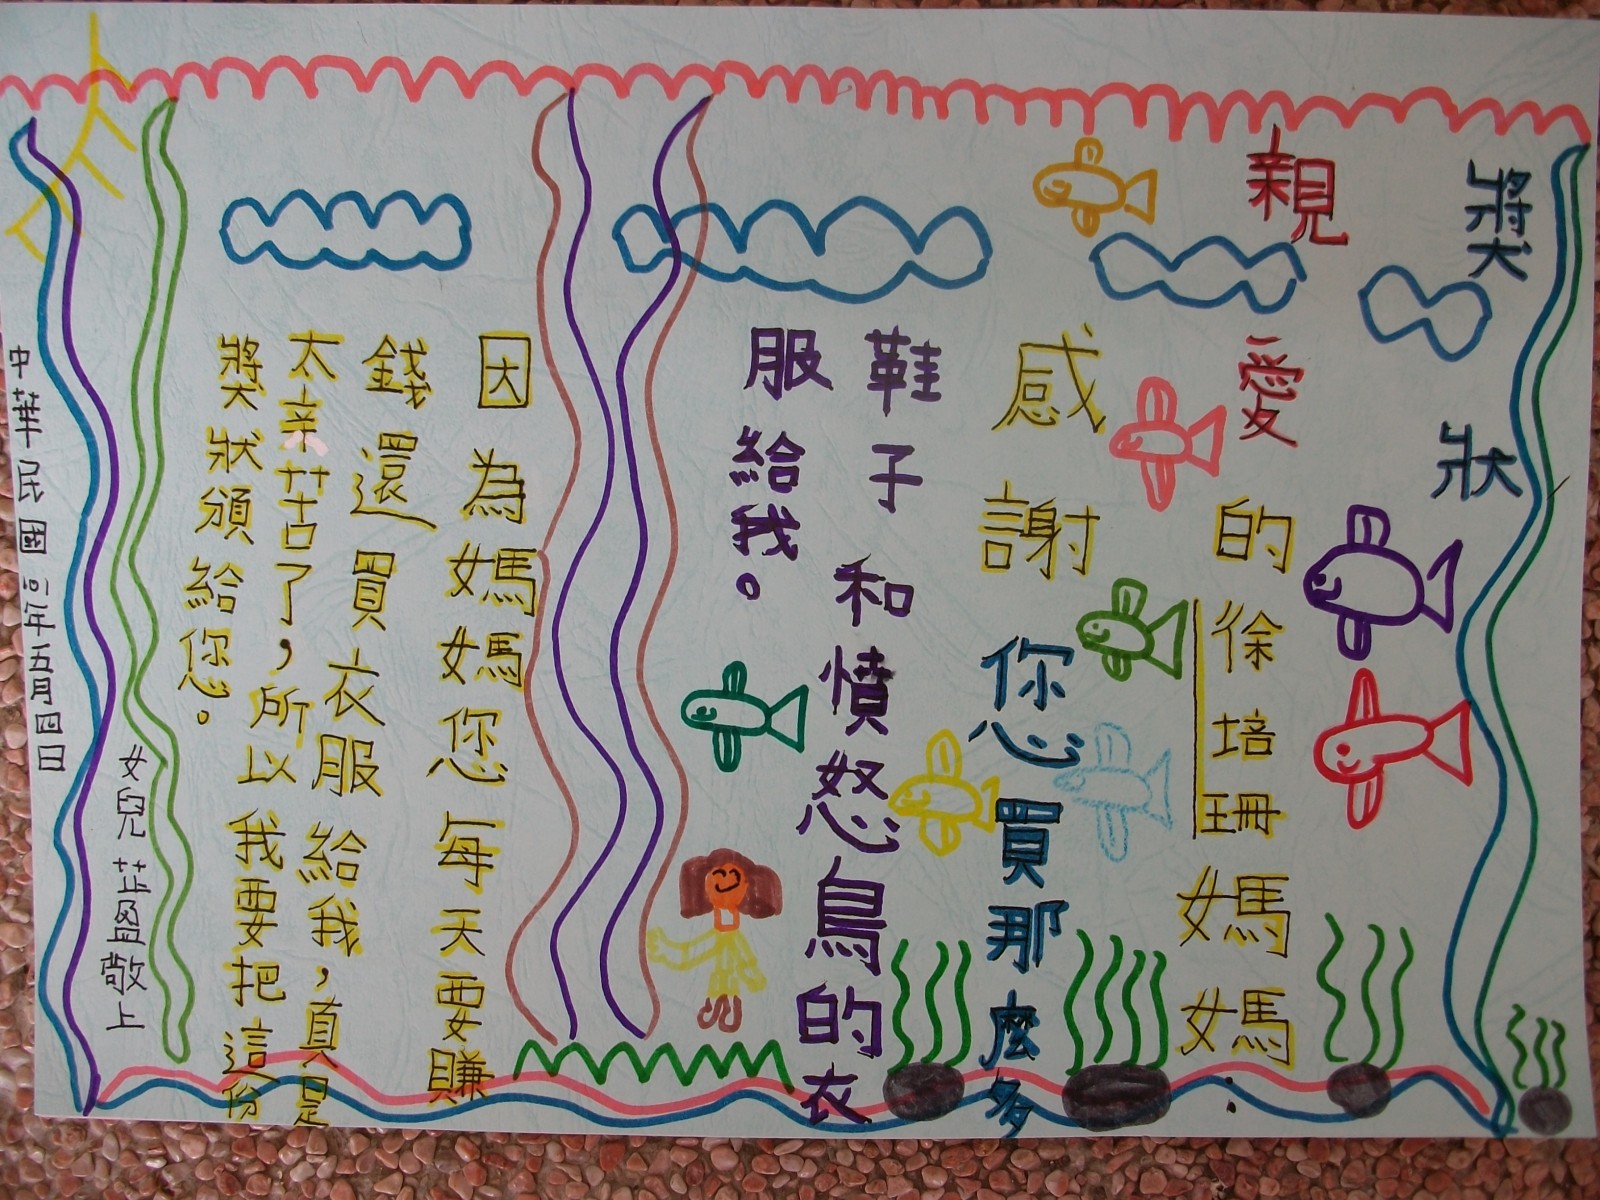 獎狀
親愛的徐培珊媽媽
感謝您買那麼多
鞋子和憤怒鳥的衣
服給我。
因為媽媽您每天要賺
錢還買衣服給我，真是
太辛苦了，所以我要把這份
獎狀頒給您。
女兒芷盈敬上
中華民國101年五月四日